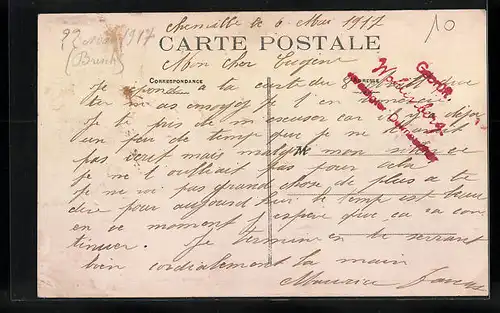 Chemillé le 6 Mai 1917
22 1917
10
CARTE POSTALE
(Brush)
Mon cher Eugène
CORRESPONDANCE
ADRESSE
Je répond à ta carte du que
tu m'as envoyé je t'en remercie
Je te pris de m'excuser car il y a déjà
un peu de temps que je ne t'avait
pas écrit mais malgré mon silence
je ne t'oubliait pas pour cela
Je ne voi pas grand chose de plus a te
dire pour aujourd'hui le temp est beau
en ce moment j'espère que ça va con
tinuer. Je termine en te serrant
bien cordialement la main
Maurice